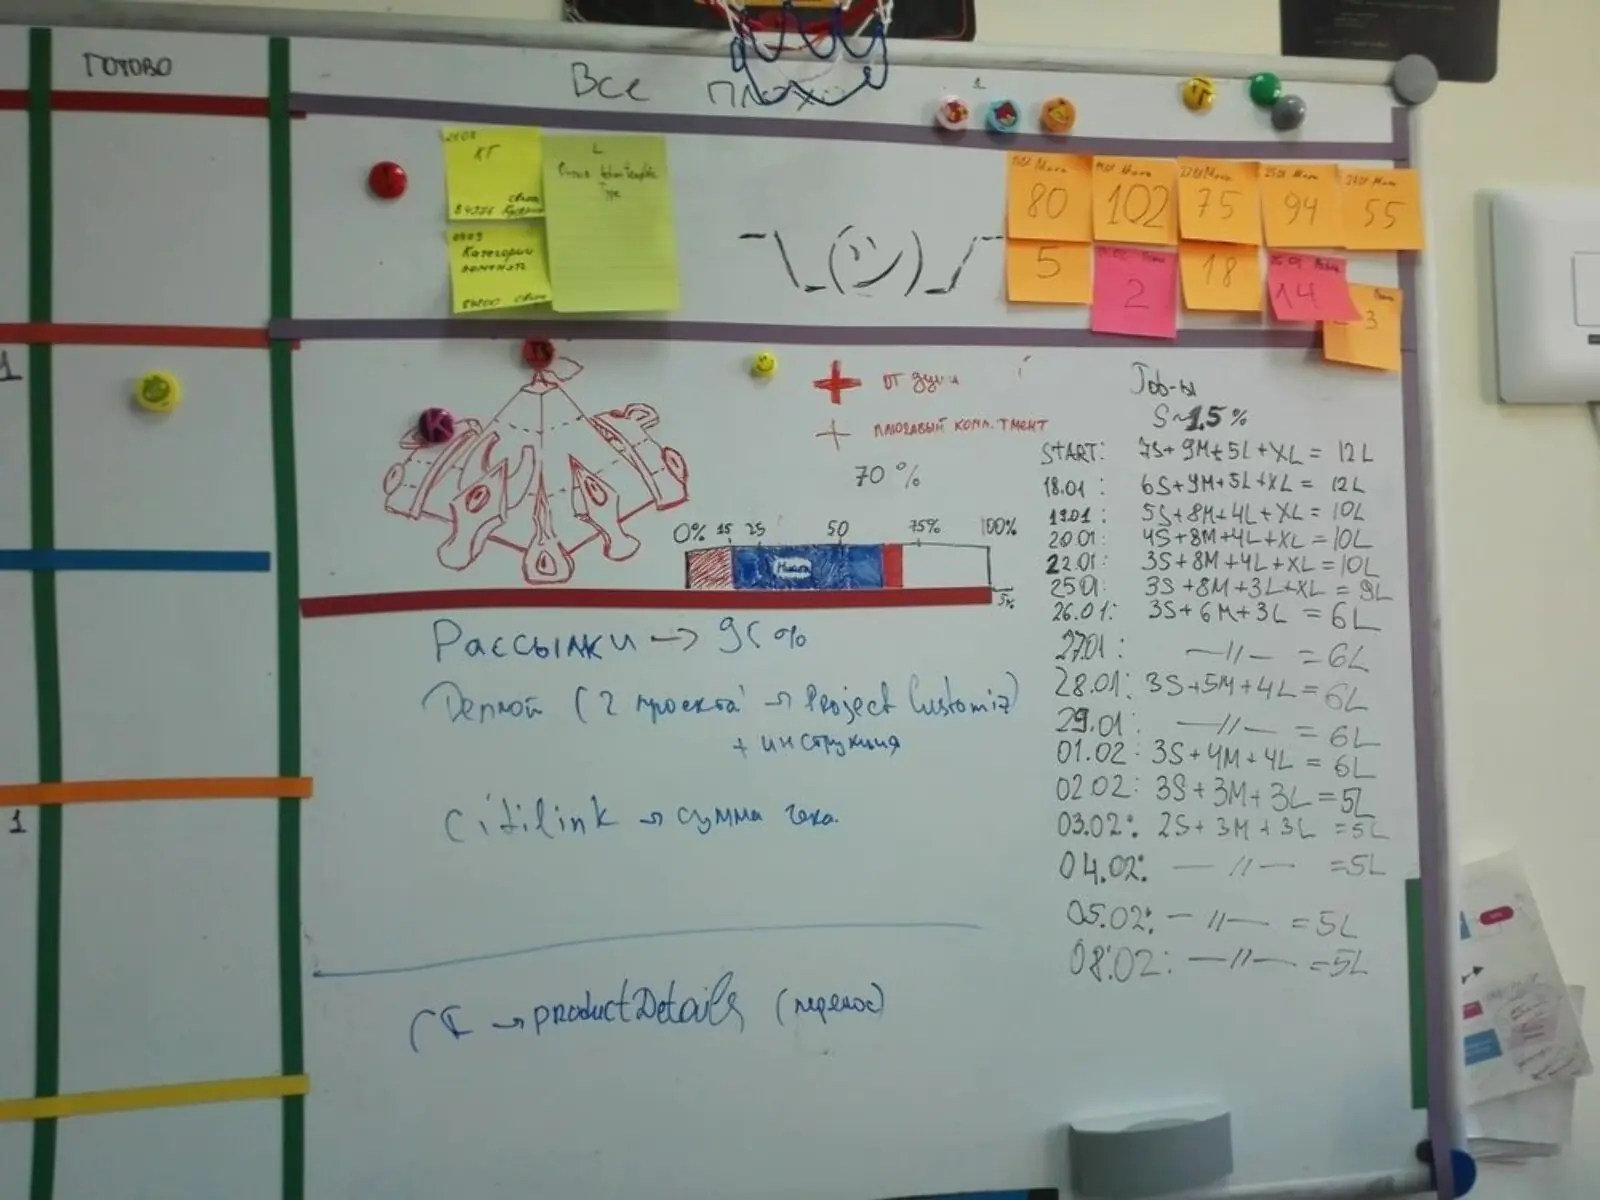 ГОТОВО
Все плохо
1
КГ
84936
0909
Категории
поменять
84200
L
Type
80
102
75
94
55
5
2
18
14
3
К
1
1
+ от души
+ плюсавый
70 %
0% 15 25 50 75% 100%
5%
Рассылки → 95 %
Деплой (2 проекта → Project Customiz)
+ инструкция
Citilink → сумма чека.
→ productDetails (перенос)
Job-ы
S~1.5 %
START: 7S+9M+5L+XL= 12L
18.01 : 6S+9M+5L+XL = 12L
19.01 : 5S+8M+4L+XL=10L
20.01 : 4S+8M+4L+XL=10L
22.01 : 3S+8M+4L+XL=10L
25.01 : 3S+8M+3L+XL = 9L
26.01: 3S+6M+3L = 6L
27.01 : —//— =6L
28.01: 3S+5M+4L=6L
29.01 : —//— = 6L
01.02 : 3S+4M+4L = 6L
02.02: 3S+3M+3L=5L
03.02: 2S+3M+3L =5L
04.02: —//— =5L
05.02: —//— =5L
08.02: —//— =5L